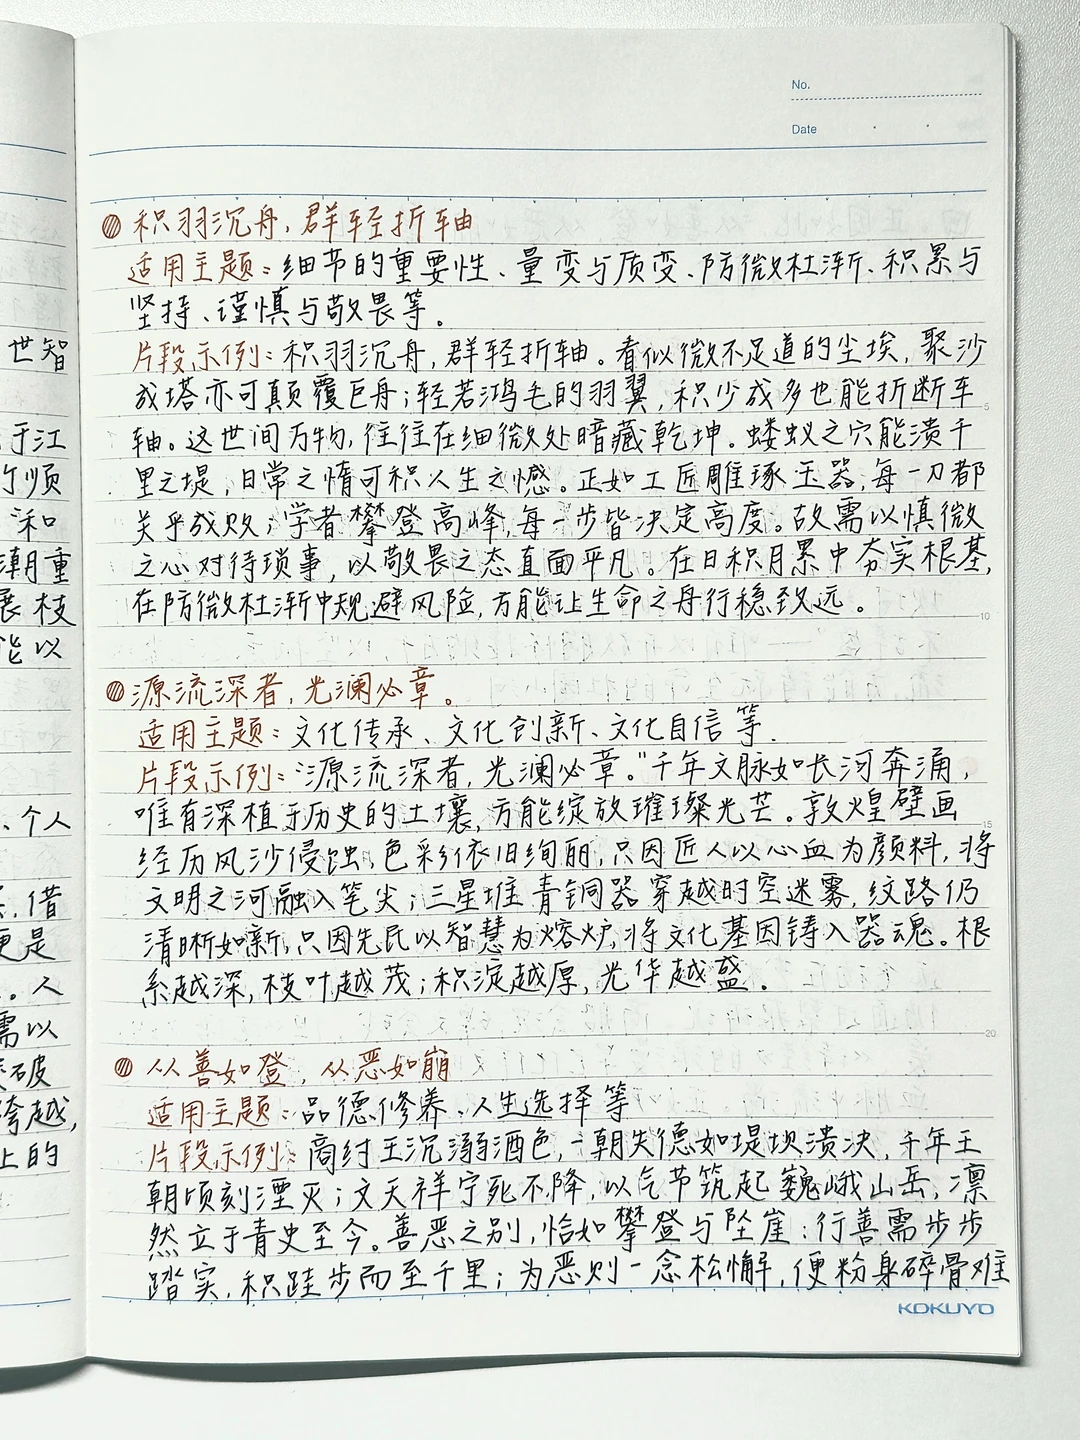 No.
Date
积羽沉舟,群轻折轴
适用主题:细节的重要性、量变与质变、防微杜渐、积累与
坚持、谨慎与敬畏等。
片段示例:积羽沉舟,群轻折轴。看似微不足道的尘埃,聚沙
成塔亦可颠覆巨舟;轻若鸿毛的羽翼,积少成多也能折断车
轴。这世间万物,往往在细微处暗藏乾坤。蝼蚁之穴能溃千
里之堤,日常之惰可积人生之憾。正如工匠雕琢玉器,每一刀都
关乎成败;学者攀登高峰,每一步皆决定高度。故需以慎微
之心对待琐事,以敬畏之态直面平凡。在日积月累中夯实根基,
在防微杜渐中规避风险,方能让生命之舟行稳致远。
源流深者,光澜必章。
适用主题:文化传承、文化创新、文化自信等.
片段示例:"源流深者,光澜必章."千年文脉如长河奔涌,
唯有深植于历史的土壤,方能绽放璀璨光芒。敦煌壁画
经历风沙侵蚀,色彩依旧绚丽,只因匠人以心血为颜料,将
文明之河融入笔尖;三星堆青铜器穿越时空迷雾,纹路仍
清晰如新,只因先民以智慧为熔炉,将文化基因铸入器魂。根
系越深,枝叶越茂;积淀越厚,光华越盛.
从善如登,从恶如崩
适用主题:品德修养、人生选择等
片段示例:商纣王沉溺酒色,一朝失德如堤坝溃决,千年王
朝顷刻湮灭;文天祥宁死不降,以气节筑起巍峨山岳,凛
然立于青史至今。善恶之别,恰如攀登与坠崖:行善需步步
踏实,积跬步而至千里;为恶则一念松懈,便粉身碎骨难
KOKUYO
世智
于江
顺
和
潮重
展枝
能以
、个人
,借
更是
。人
需以
破
跨越,
上的
5
10
15
20